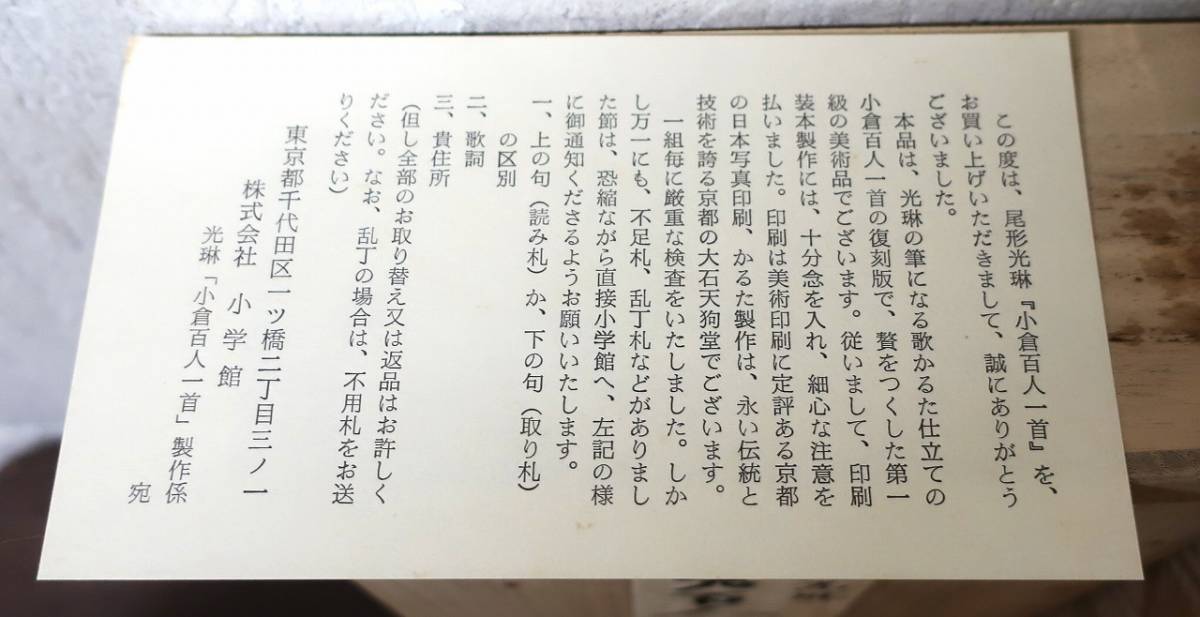 この度は、尾形光琳『小倉百人一首』を、
お買い上げいただきまして、誠にありがとう
ございました。
本品は、光琳の筆になる歌かるた仕立ての
小倉百人一首の復刻版で、贅をつくした第一
級の美術品でございます。従いまして、印刷
装本製作には、十分念を入れ、細心な注意を
払いました。印刷は美術印刷に定評ある京都
の日本写真印刷、かるた製作は、永い伝統と
技術を誇る京都の大石天狗堂でございます。
一組毎に厳重な検査をいたしました。しか
し万一にも、不足札、乱丁札などがありまし
た節は、恐縮ながら直接小学館へ、左記の様
に御通知くださるようお願いいたします。
一、上の句（読み札）か、下の句（取り札）
の区別
二、歌詞
三、貴住所
（但し全部のお取り替え又は返品はお許しく
ださい。なお、乱丁の場合は、不用札をお送
りください）
東京都千代田区一ツ橋二丁目三ノ一
株式会社 小学館
光琳「小倉百人一首」製作係
宛